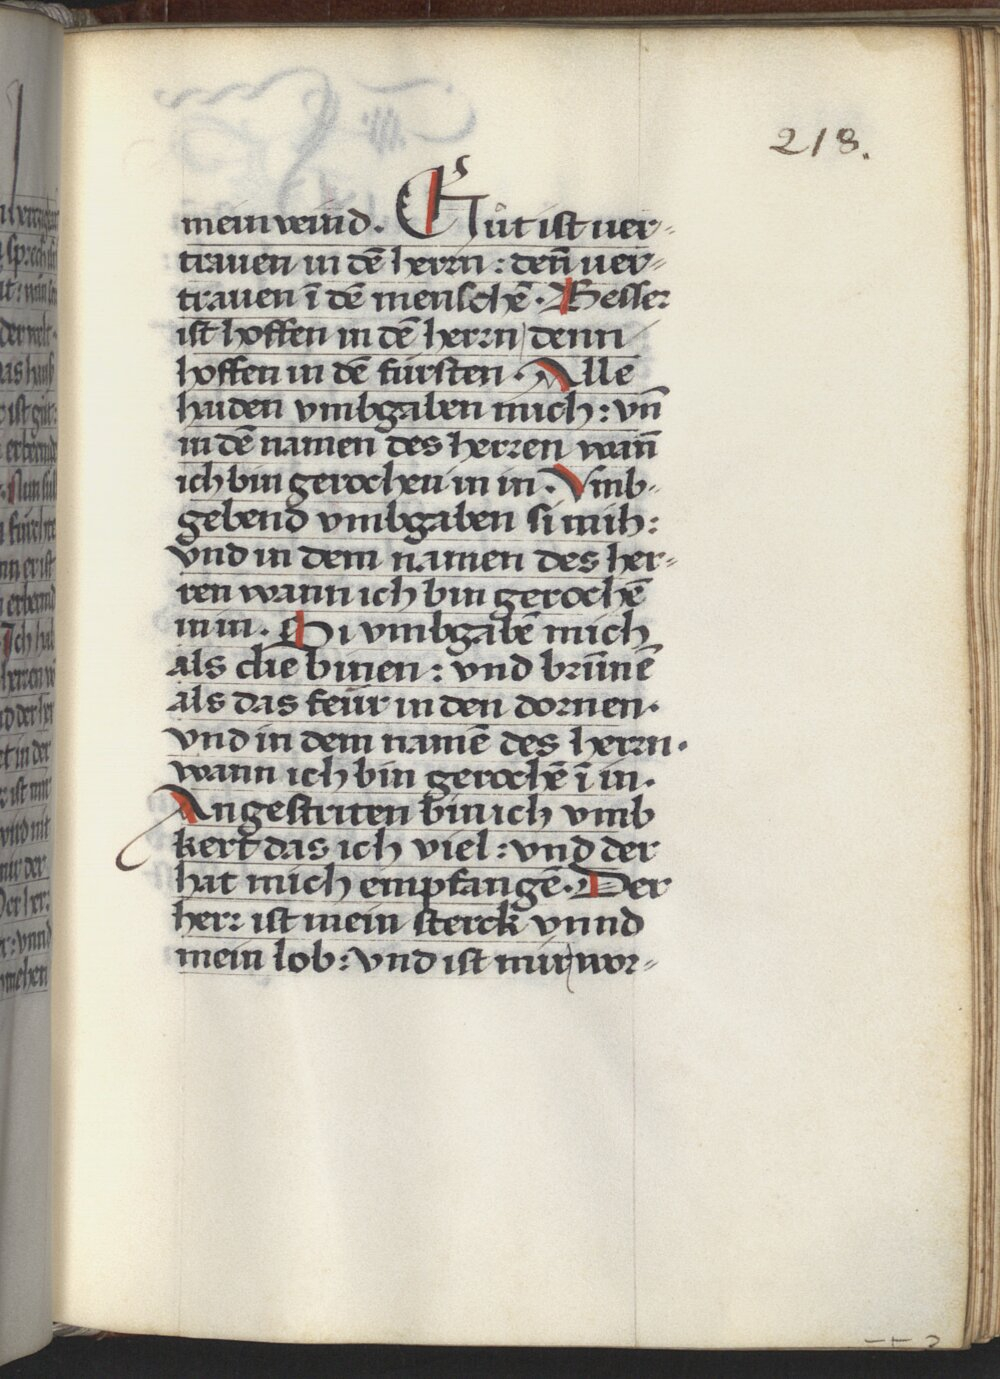 218.
mein veind. Gůt ist ver-
trauen in dē herrn: deñ ver-
trauen ī dē menschē. Besser
ist hoffen in dē herrn denn
hoffen in dē fürsten. Alle
haiden vmbgaben mich: vñ
in dē namen des herren wañ
ich bin gerochen in in. Vmb-
gebend vmbgaben si mih:
vnd in dem namen des her-
ren wann ich bin gerochē
in in. Si vmbgabē mich
als die binen: vnd brūnē
als das feür in den dornen.
vnd in dem namē des herrn.
wann ich bin gerochē ī in.
Angestriten bin ich vmb
kert das ich viel: vnd der
hat mich empfangē. Der
herr ist mein sterck vnnd
mein lob: vnd ist mir wor-